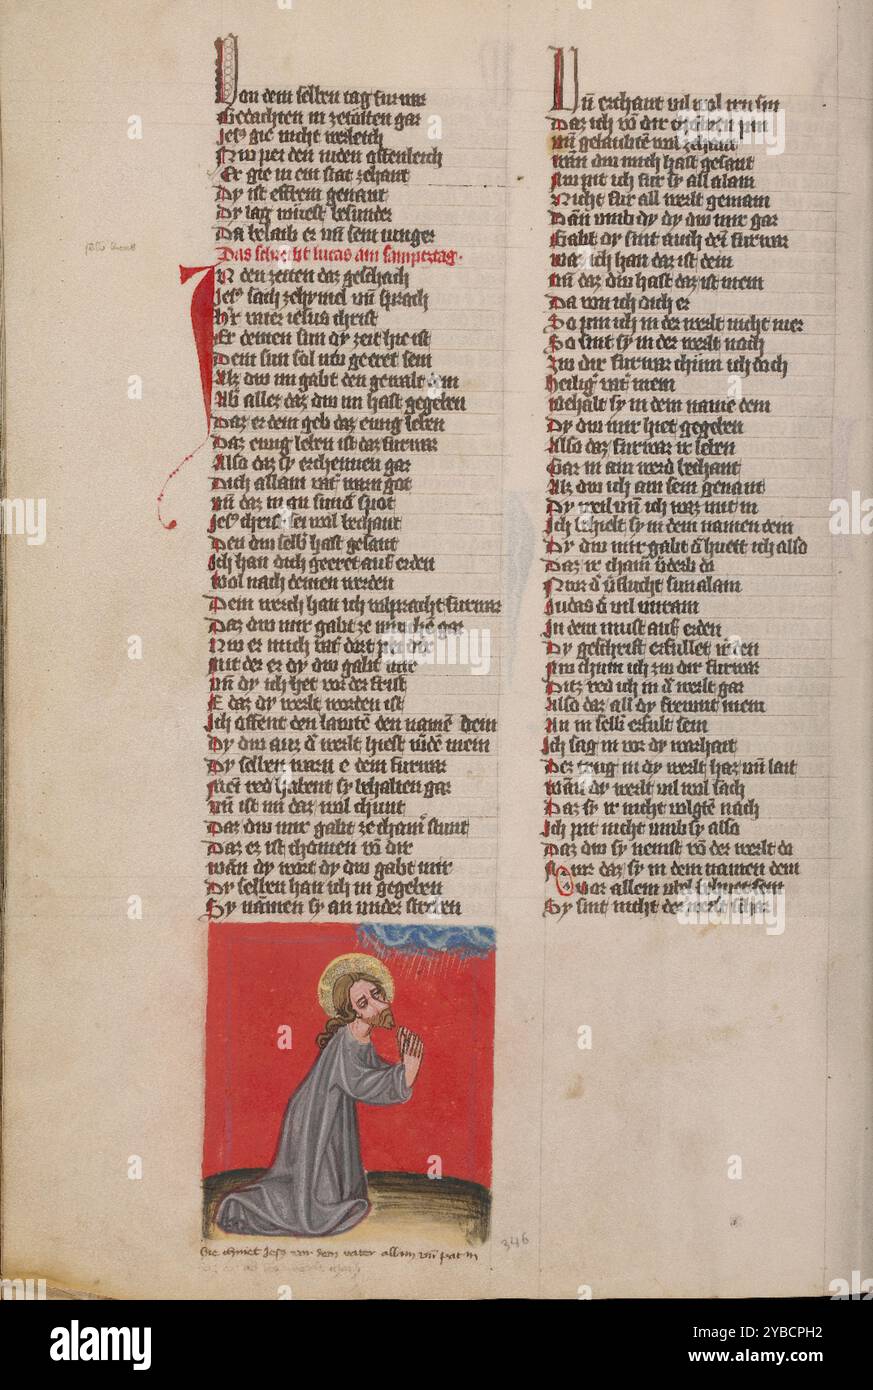 Von dem selben tag fur war
Gedachten in ze tötten gar
Jesus gie nicht werleich
Nw pei den iuden offenleich
Er gie in ein stat zehant
Dy ist effrem genant
Dy lag wüest besunder
Da belaib er vñ sein iunger
Das schreibt lucas am sampcztag
IN den zeiten daz geschach
Jesus sach ze hymel vñ sprach
vater iesus christ
Er deinen sun dy zeit hie ist
Dein sun sol nw geeret sein
Alz dw im gabt den gewalt dein
Ab alles daz dw im hast gegeben
Daz er dem geb daz ewig leben
Daz ewig leben ist daz furwar
Also daz sy erchennen gar
Dich allain got
vñ daz in an spot
Jesus christ sei wol bechant
Den dw selb hast gesant
Ich han dich geeret auf erden
Wol nach deinen werden
Dein werch han ich volpracht furwar
Daz dw mir gabt ze gar
Nw er mich dort pei dir
Mit der er dy dw gabt mir
vñ dy ich het vor der frist
E daz dy werlt worden ist
Ich offent den den namen dein
Dy dw aus der werlt hiest mein
Dy selben warn e dein furwar
Mein red habent sy behalten gar
vñ ist in daz wol chunt
Daz dw mir gabt ze stunt
Daz ez ist chomen von dir
wan dy wort dy dw gabt mir
Dy selben han ich in gegeben
Sy namen sy an
Vñ erchant vil wol
Daz ich võ dir pin
vñ gelaubten wol zehant
wan dw mich hast gesant
Nw pit ich fur sy all alain
Nicht fur all werlt gemain
Dan vmb dy dy dw mir gar
Gabt dy sint auch dein furwar
waz ich han daz ist dein
vñ daz dw hast daz ist mein
Da von ich dich er
So pin ich in der werlt nicht mer
So sint sy in der werlt noch
Zw dir furwar chum ich doch
Heilig vater mein
Behalt sy in dem name dein
Dy dw mir hiet gegeben
Also daz furwar ir leben
Gar in ain werd bechant
Alz dw ich ain sein genant
Dy weil vñ ich waz mit in
Ich behielt sy in dem namen dein
Dy dw mir gabt ich also
Daz ir chainer da
Nur der verflucht sun alain
Judas
In dem must auf erden
Dy geschrift erfullet werden
Nw chum ich zw dir furwar
Ditz red ich in der werlt gar
Also daz all dy freunt mein
An in selb erfult sein
Ich sag in vor dy warhait
Der trug in dy werlt haz vñ lait
Wan dy werlt vil wol sach
Daz sy ir nicht volgten nach
Ich pit nicht vmb sy also
Daz dw sy nemst von der werlt da
Nur daz sy in dem namen dein
Vor allem vbel behuet sein
Sy sint nicht der werlt
Hie chniet Jesus vor dem vater allain vñ pat in
346
alamy
Image ID: 2YBCPH2
www.alamy.com